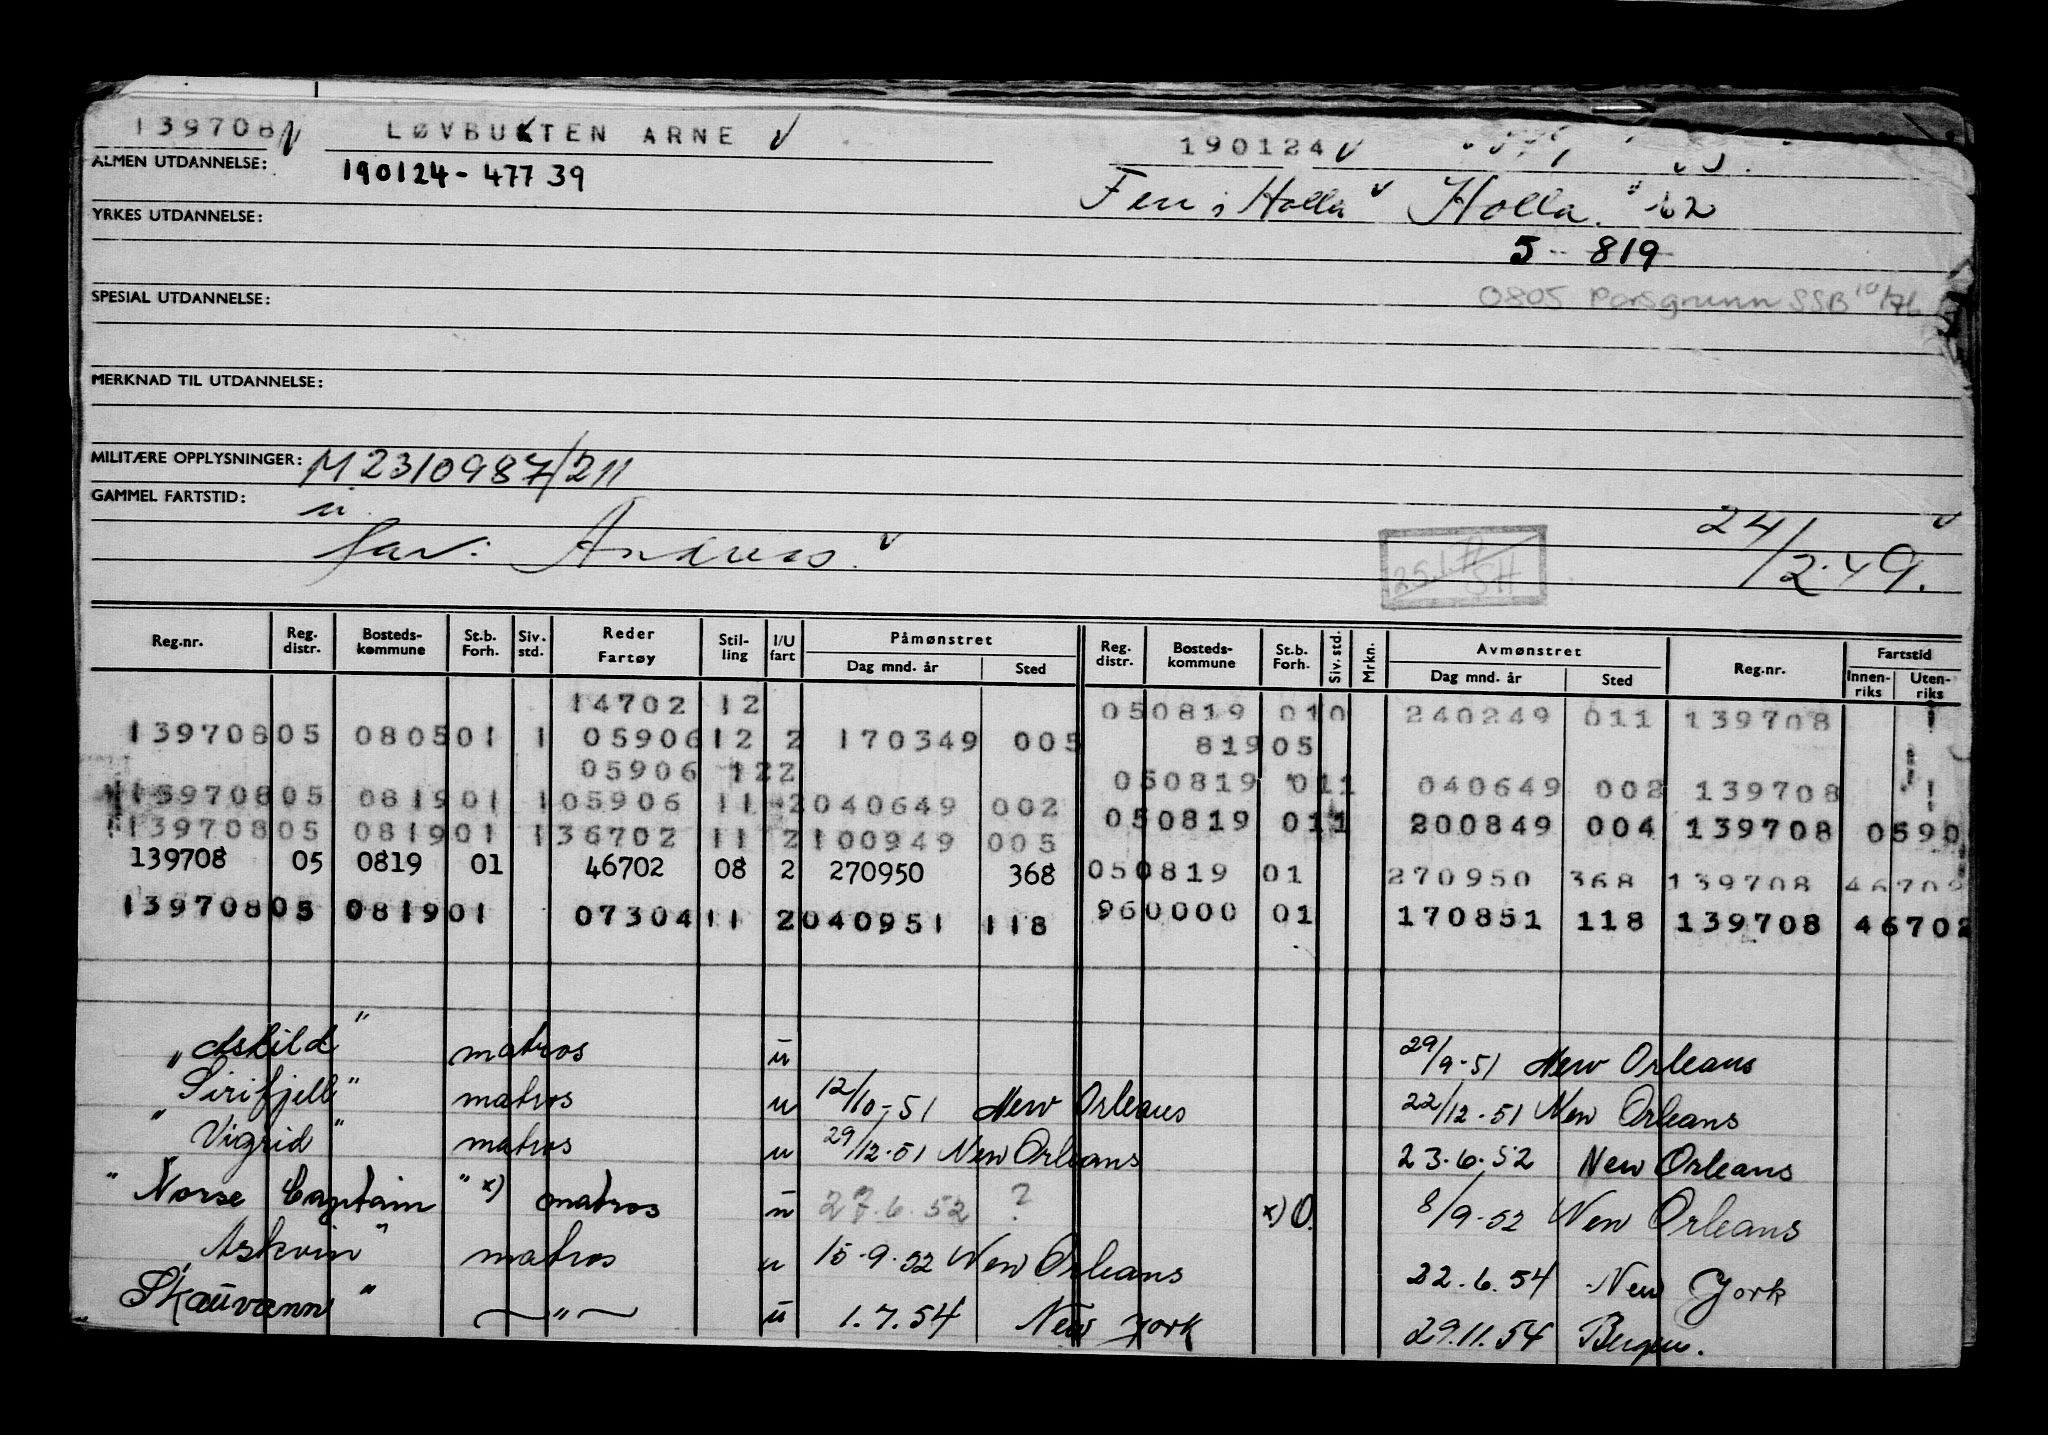 139708 LØVBUKTEN ARNE 190124
ALMEN UTDANNELSE: 190124-477 39
Fen i Holla Holla
YRKES UTDANNELSE:
5 819
SPESIAL UTDANNELSE:
0805 Porsgrunn SSB 10/76
MERKNAD TIL UTDANNELSE:
MILITÆRE OPPLYSNINGER: M2310987/211
GAMMEL FARTSTID: u.
far: Andreas. 24/2.49.
Reg.nr. Reg. distr. Bosteds-kommune St.b. Forh. Siv. std. Reder Fartøy Stil-ling I/U fart Påmønstret Dag mnd. år Sted Reg. distr. Bosteds-kommune St.b. Forh. Siv. std. Mrkn. Avmønstret Dag mnd. år Sted Reg.nr. Fartstid Innen-riks Uten-riks
14702 12 050819 010 240249 011 139708
139708 05 0805 01 1 05906 12 2 170349 005 819 05
05906 12 2 050819 011 040649 002 139708
139708 05 0819 01 1 05906 11 2 040649 002 050819 011 200849 004 139708 0590
139708 05 0819 01 1 36702 11 2 100949 005
139708 05 0819 01 46702 08 2 270950 368 050819 01 270950 368 139708 46702
139708 05 0819 01 07304 11 2 040951 118 960000 01 170851 118 139708 46702
"Askild" matros u 29/9-51 New Orleans
"Sirifjell" matros u 12/10-51 New Orleans 22/12.51 New Orleans
"Vigrid" matros u 29/12.51 New Orleans 23.6.52 New Orleans
"Norse Captain" x) matros u 27.6.52 ? x) O. 8/9-52 New Orleans
Askvin" matros u 15.9.52 New Orleans 22.6.54 New York
"Skauvann" —"— u 1.7.54 New York 29.11.54 Bergen.